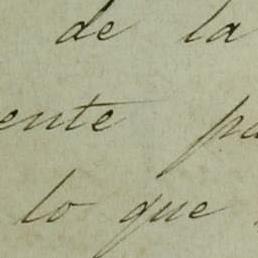 de la
ente pa
lo que